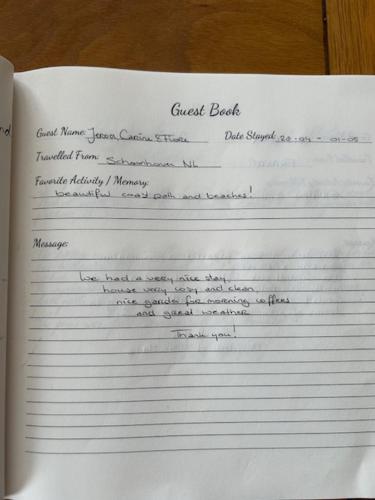 nd
Guest Book
Guest Name: Jeroen, Carine & Fiore Date Stayed: 28-04 - 01-05
Travelled From: Schoonhoven NL
Favorite Activity / Memory:
beautiful coast path and beaches!
Message:
We had a very nice stay,
house very cosy and clean,
nice garden for morning coffees
and great weather
Thank you!